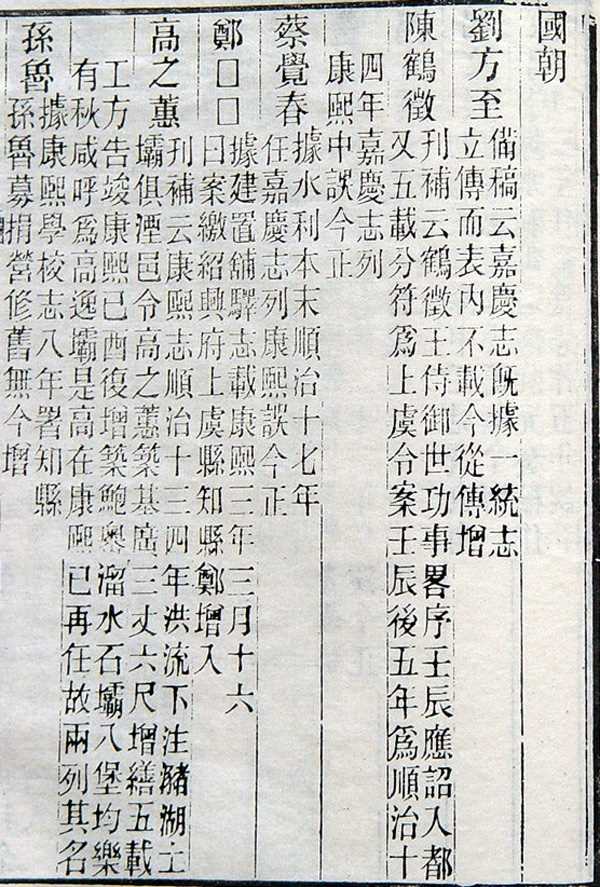 國朝
劉方至
備稿云嘉慶志既據一統志
立傳而表內不載今從傳增
陳鶴徵
刊補云鶴徵王侍御世功事畧序壬辰應詔入都
又五載分符爲上虞令案壬辰後五年爲順治十
四年嘉慶志列
康熙中誤今正
蔡覺春
據水利本末順治十七年
任嘉慶志列康熙誤今正
鄭□□
據建置舖驛志載康熙三年三月十六
日案繳紹興府上虞縣知縣鄭增入
高之蕙
刊補云康熙志順治十三四年洪流下注瀦湖土
壩俱湮邑令高之蕙築基廣三丈六尺增繕五載
工方告竣康熙已酉復增築鮑墺溜水石壩八堡均樂
有秋咸呼爲高逸壩是高在康熙已再任故兩列其名
孫魯
據康熙學校志八年署知縣
孫魯募捐營修舊無今增